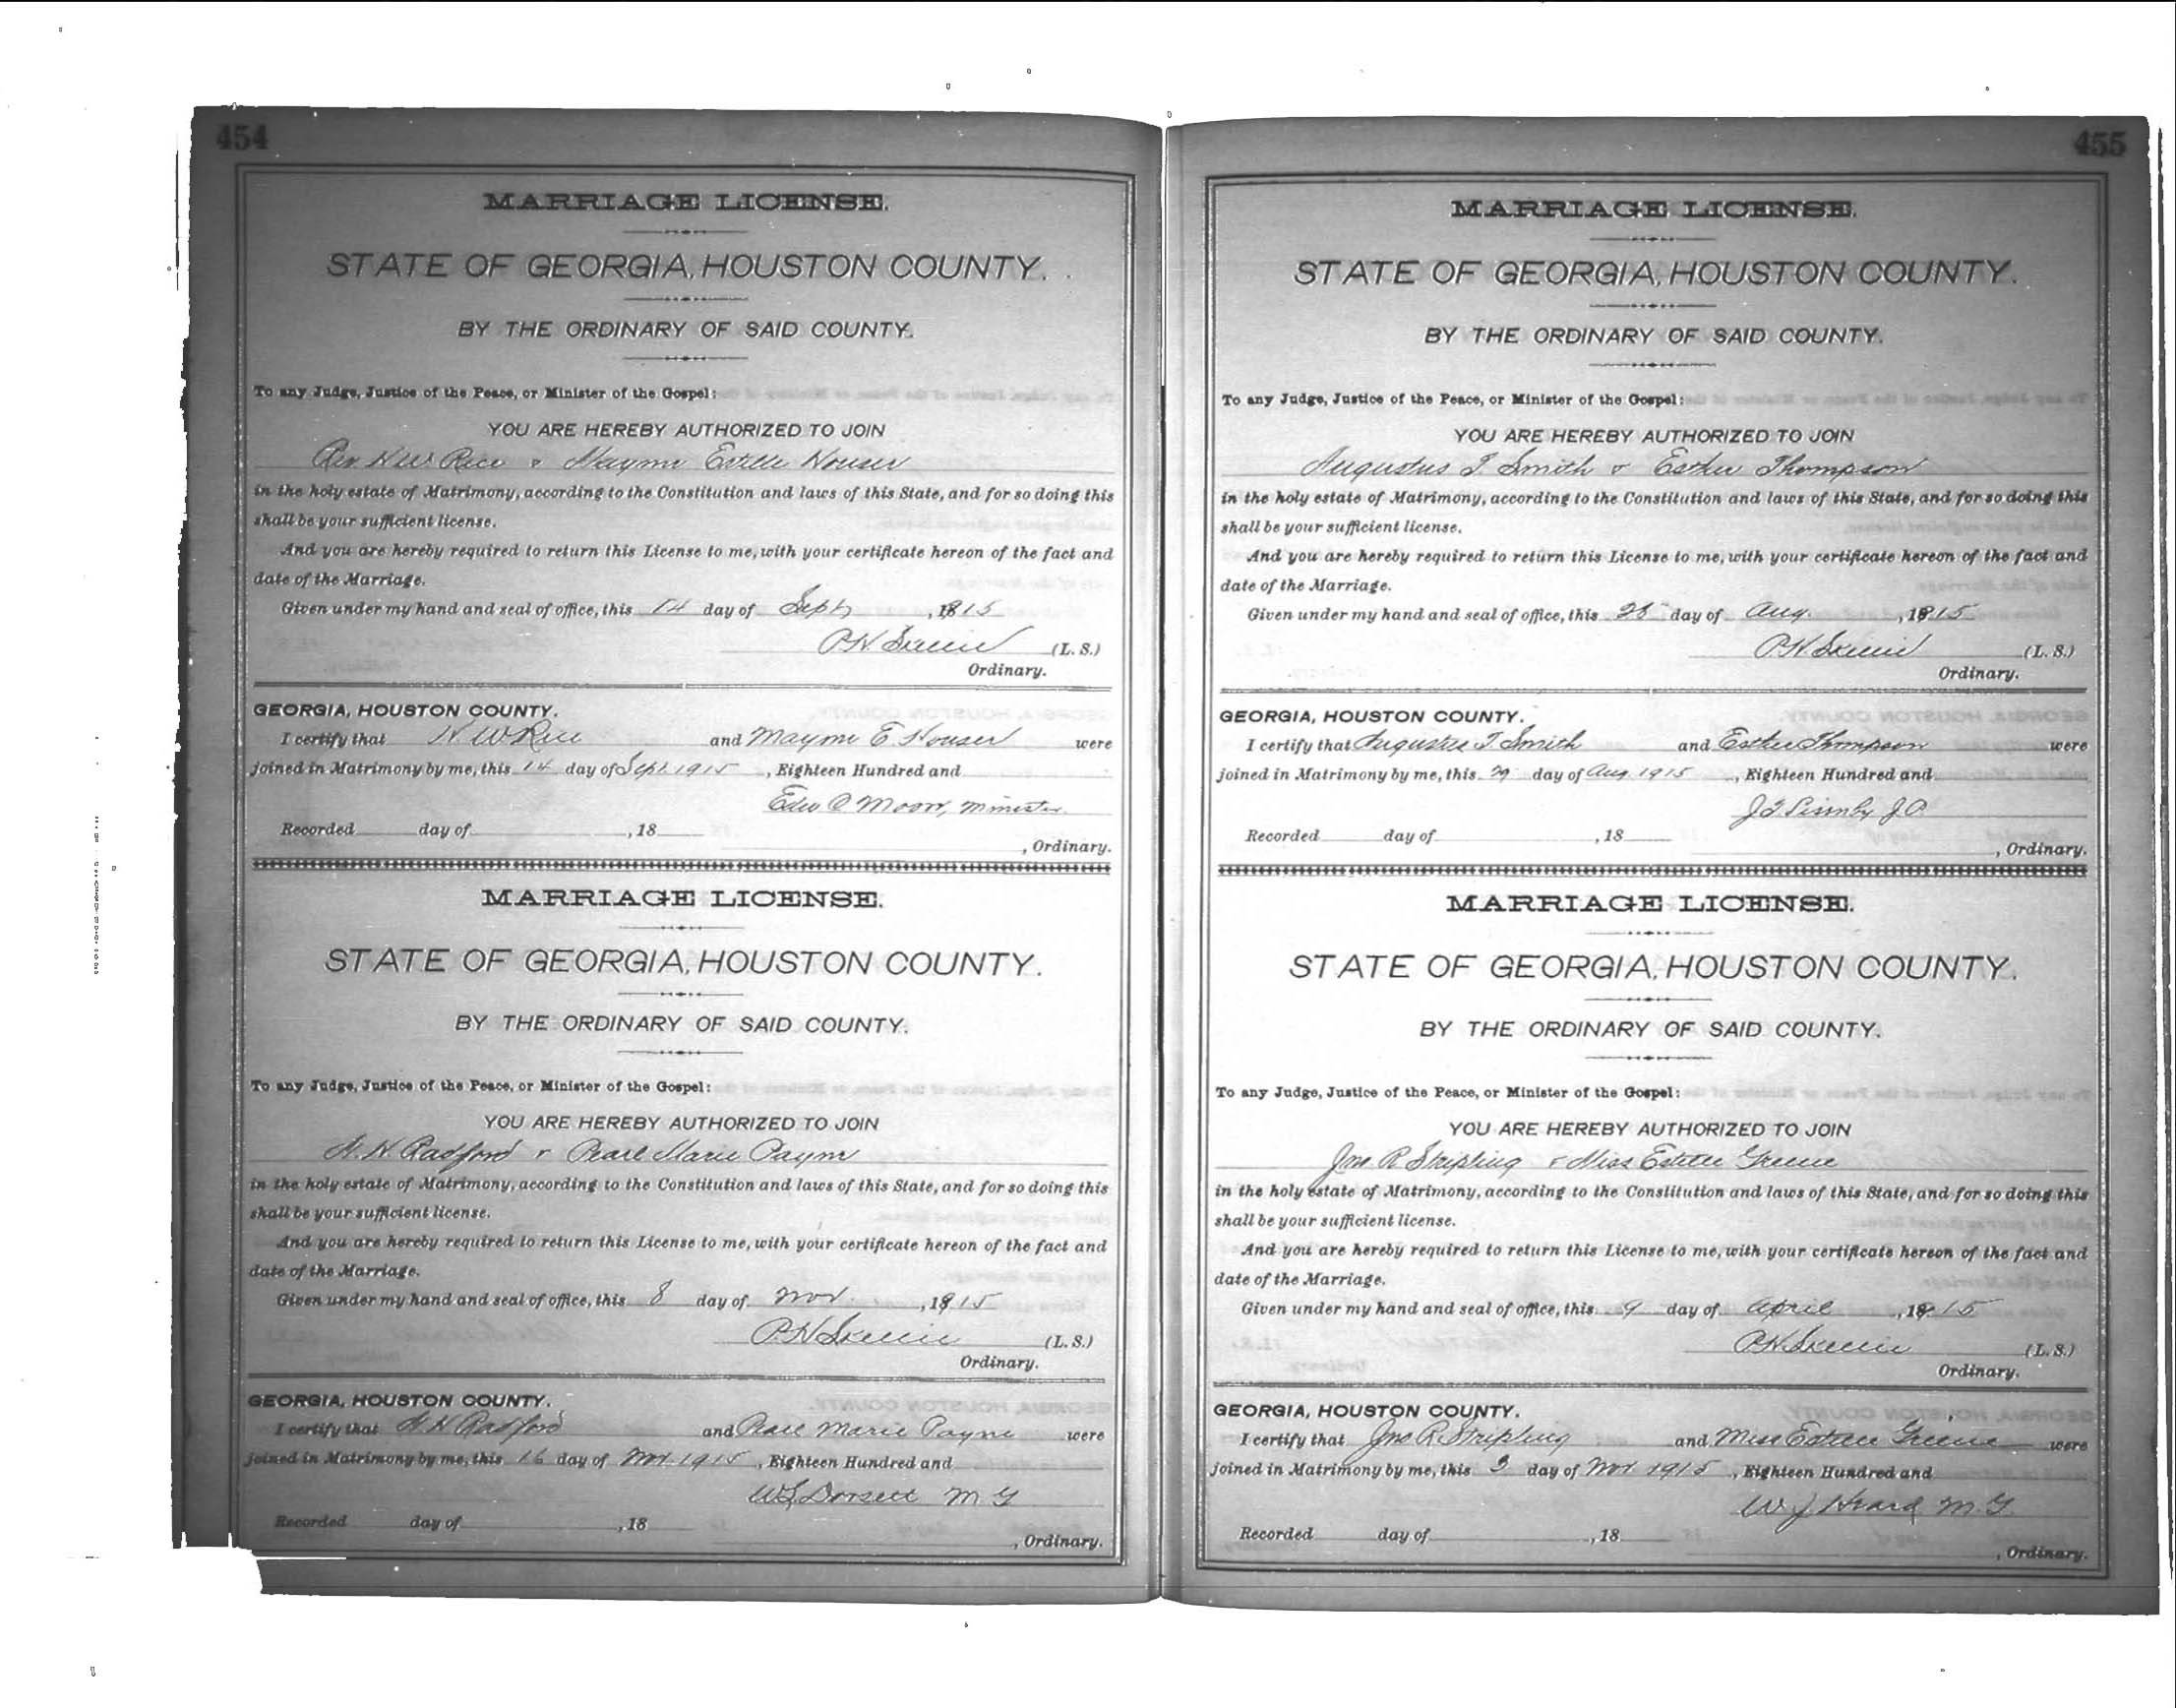 454
MARRIAGE LICENSE.
STATE OF GEORGIA, HOUSTON COUNTY.
BY THE ORDINARY OF SAID COUNTY.
To any Judge, Justice of the Peace, or Minister of the Gospel:
YOU ARE HEREBY AUTHORIZED TO JOIN
Rev H W Rice & Mayme Estelle Houser
in the holy estate of Matrimony, according to the Constitution and laws of this State, and for so doing this
shall be your sufficient license.
And you are hereby required to return this License to me, with your certificate hereon of the fact and
date of the Marriage.
Given under my hand and seal of office, this 14 day of Sept, 1915
(L. S.)
Ordinary.
GEORGIA, HOUSTON COUNTY.
I certify that H. W Rice and Mayme E. Houser were
joined in Matrimony by me, this 14 day of Sept. 1915, Eighteen Hundred and
Minister.
Recorded day of , 18
, Ordinary.
MARRIAGE LICENSE.
STATE OF GEORGIA, HOUSTON COUNTY.
BY THE ORDINARY OF SAID COUNTY.
To any Judge, Justice of the Peace, or Minister of the Gospel:
YOU ARE HEREBY AUTHORIZED TO JOIN
Radford & Pearl Marie Payne
in the holy estate of Matrimony, according to the Constitution and laws of this State, and for so doing this
shall be your sufficient license.
And you are hereby required to return this License to me, with your certificate hereon of the fact and
date of the Marriage.
Given under my hand and seal of office, this 8 day of Nov. , 1915
(L. S.)
Ordinary.
GEORGIA, HOUSTON COUNTY.
I certify that Radford and Pearl Marie Payne were
joined in Matrimony by me, this 16 day of Nov. 1915, Eighteen Hundred and
Dorsett M G
Recorded day of , 18
, Ordinary.
455
MARRIAGE LICENSE.
STATE OF GEORGIA, HOUSTON COUNTY.
BY THE ORDINARY OF SAID COUNTY.
To any Judge, Justice of the Peace, or Minister of the Gospel:
YOU ARE HEREBY AUTHORIZED TO JOIN
Augustus T. Smith & Esther Thompson
in the holy estate of Matrimony, according to the Constitution and laws of this State, and for so doing this
shall be your sufficient license.
And you are hereby required to return this License to me, with your certificate hereon of the fact and
date of the Marriage.
Given under my hand and seal of office, this day of Aug. , 1915
(L. S.)
Ordinary.
GEORGIA, HOUSTON COUNTY.
I certify that Augustus T. Smith and Esther Thompson were
joined in Matrimony by me, this 29 day of Aug 1915, Eighteen Hundred and
Recorded day of , 18
, Ordinary.
MARRIAGE LICENSE.
STATE OF GEORGIA, HOUSTON COUNTY.
BY THE ORDINARY OF SAID COUNTY.
To any Judge, Justice of the Peace, or Minister of the Gospel:
YOU ARE HEREBY AUTHORIZED TO JOIN
Jno. R Stripling & Miss Estelle Greene
in the holy estate of Matrimony, according to the Constitution and laws of this State, and for so doing this
shall be your sufficient license.
And you are hereby required to return this License to me, with your certificate hereon of the fact and
date of the Marriage.
Given under my hand and seal of office, this 9 day of April , 1915
(L. S.)
Ordinary.
GEORGIA, HOUSTON COUNTY.
I certify that Jno R. Stripling and Miss Estelle Greene were
joined in Matrimony by me, this 3 day of Nov 1915, Eighteen Hundred and
W. J. Heard M. G.
Recorded day of , 18
, Ordinary.